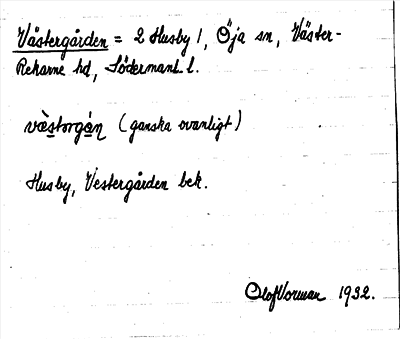 Västergården = 2 Husby 1, Öja sn, Väster-
Rekarne hd, Södermanl. l.
væ̀storgán (ganska ovanligt)
Husby, Vestergården bek.
Olof Vorman 1932.